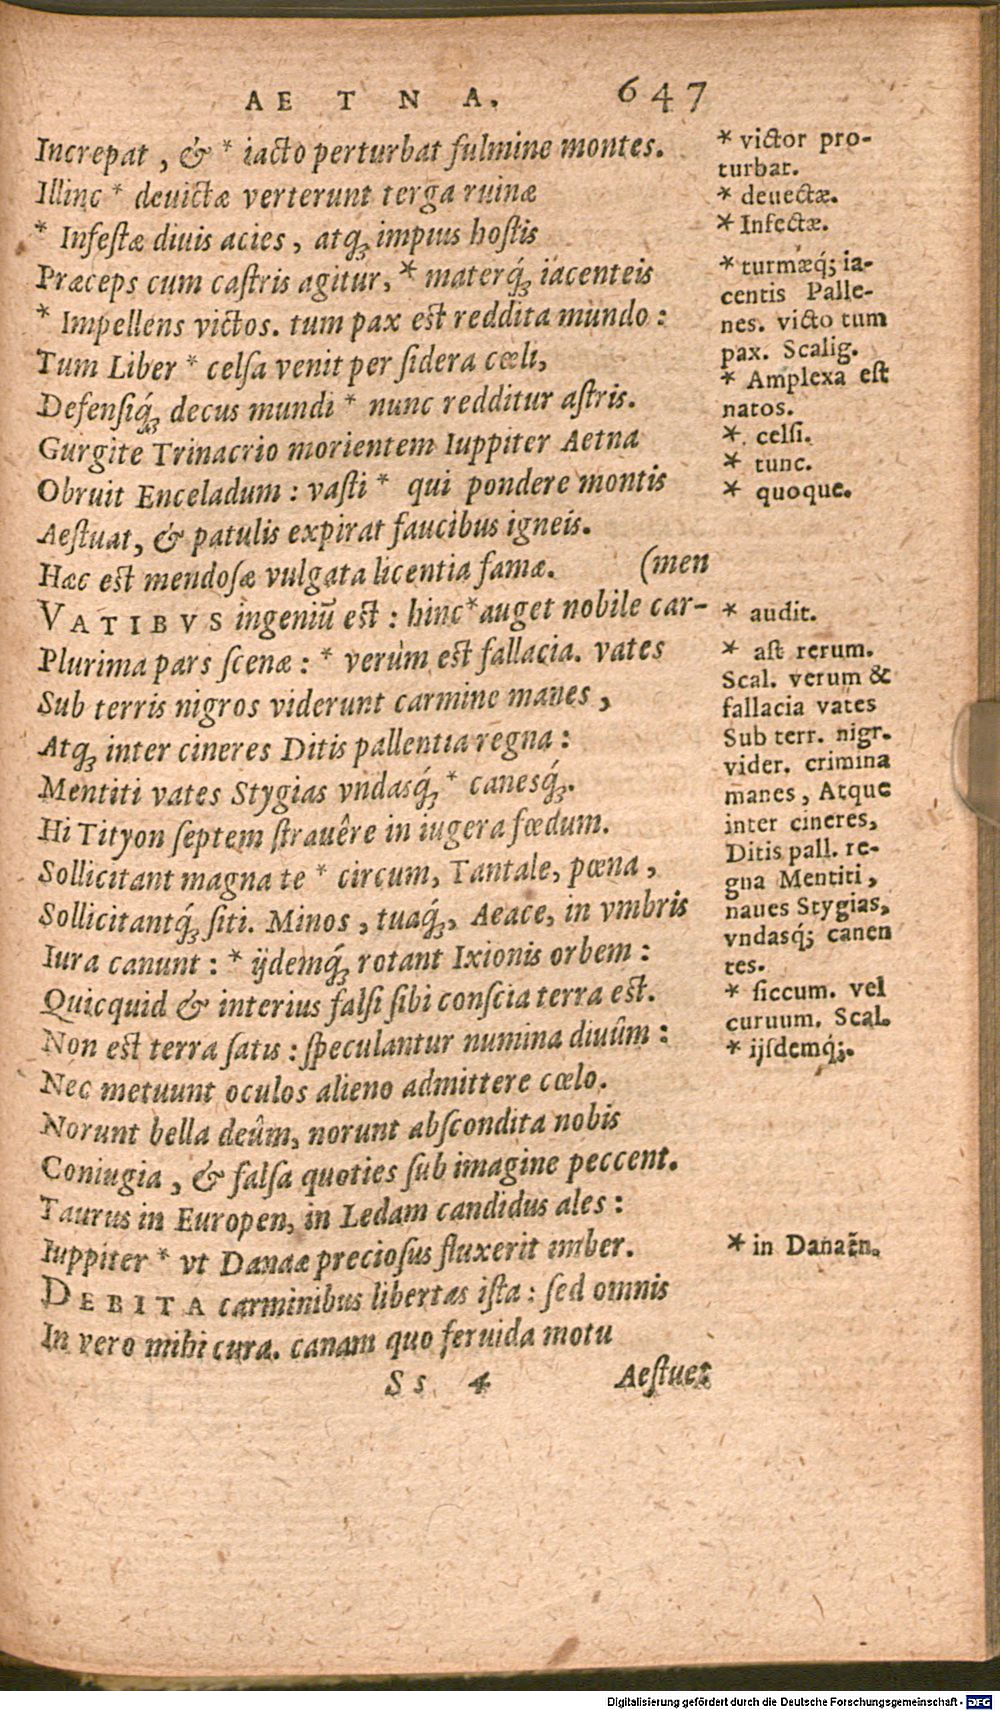 AETNA. 647
Increpat, & * iacto perturbat fulmine montes.
Illinc * deuictæ verterunt terga ruinæ
* Infestæ diuis acies, atq; impius hostis
Præceps cum castris agitur, * materq́; iacenteis
* Impellens victos. tum pax est reddita mundo:
Tum Liber * celsa venit per sidera cœli,
Defensiq́; decus mundi * nunc redditur astris.
Gurgite Trinacrio morientem Iuppiter Aetna
Obruit Enceladum: vasti * qui pondere montis
Aestuat, & patulis expirat faucibus igneis.
Hæc est mendosæ vulgata licentia famæ. (men
VATIBVS ingeniū est: hinc * auget nobile car-
Plurima pars scenæ: * verùm est fallacia. vates
Sub terris nigros viderunt carmine manes,
Atq; inter cineres Ditis pallentia regna:
Mentiti vates Stygias vndasq́; * canesq́;.
Hi Tityon septem strauêre in iugera fœdum.
Sollicitant magna te * circum, Tantale, pœna,
Sollicitantq́; siti. Minos, tuaq́;, Aeace, in vmbris
Iura canunt: * ijdemq́; rotant Ixionis orbem:
Quicquid & interius falsi sibi conscia terra est.
Non est terra satis: speculantur numina diuûm:
Nec metuunt oculos alieno admittere cœlo.
Norunt bella deûm, norunt abscondita nobis
Coniugia, & falsa quoties sub imagine peccent.
Taurus in Europen, in Ledam candidus ales:
Iuppiter * vt Danaæ preciosus fluxerit imber.
DEBITA carminibus libertas ista: sed omnis
In vero mihi cura. canam quo feruida motu
Ss 4 Aestuet
* victor pro-
turbat.
* deuectæ.
* Infectæ.
* turmæq́; ia-
centis Palle-
nes. victo tum
pax. Scalig.
* Amplexa est
natos.
* celsi.
* tunc.
* quoque.
* audit.
* ast rerum.
Scal. verum &
fallacia vates
Sub terr. nigr.
vider. crimina
manes, Atque
inter cineres,
Ditis pall. re-
gna Mentiti,
naues Stygias,
vndasq́; canen
tes.
* siccum. vel
curuum. Scal.
* ijsdemq́;.
* in Danaēn.
Digitalisierung gefördert durch die Deutsche Forschungsgemeinschaft - DFG